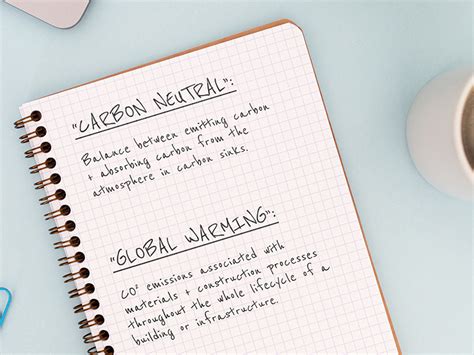 "CARBON NEUTRAL":
Balance between emitting carbon
+ absorbing carbon from the
atmosphere in carbon sinks.
"GLOBAL WARMING":
CO² emissions associated with
materials + construction processes
throughout the whole lifecycle of a
building or infrastructure.